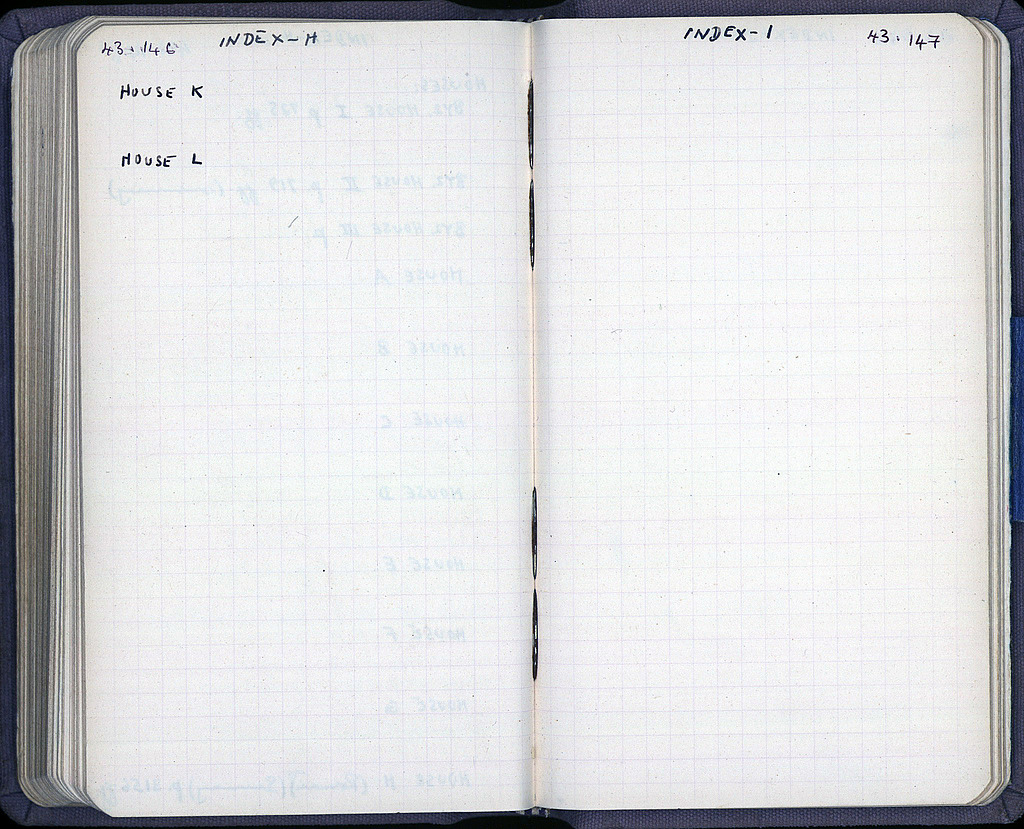 43.146 INDEX-H
HOUSE K
HOUSE L
INDEX-I 43.147